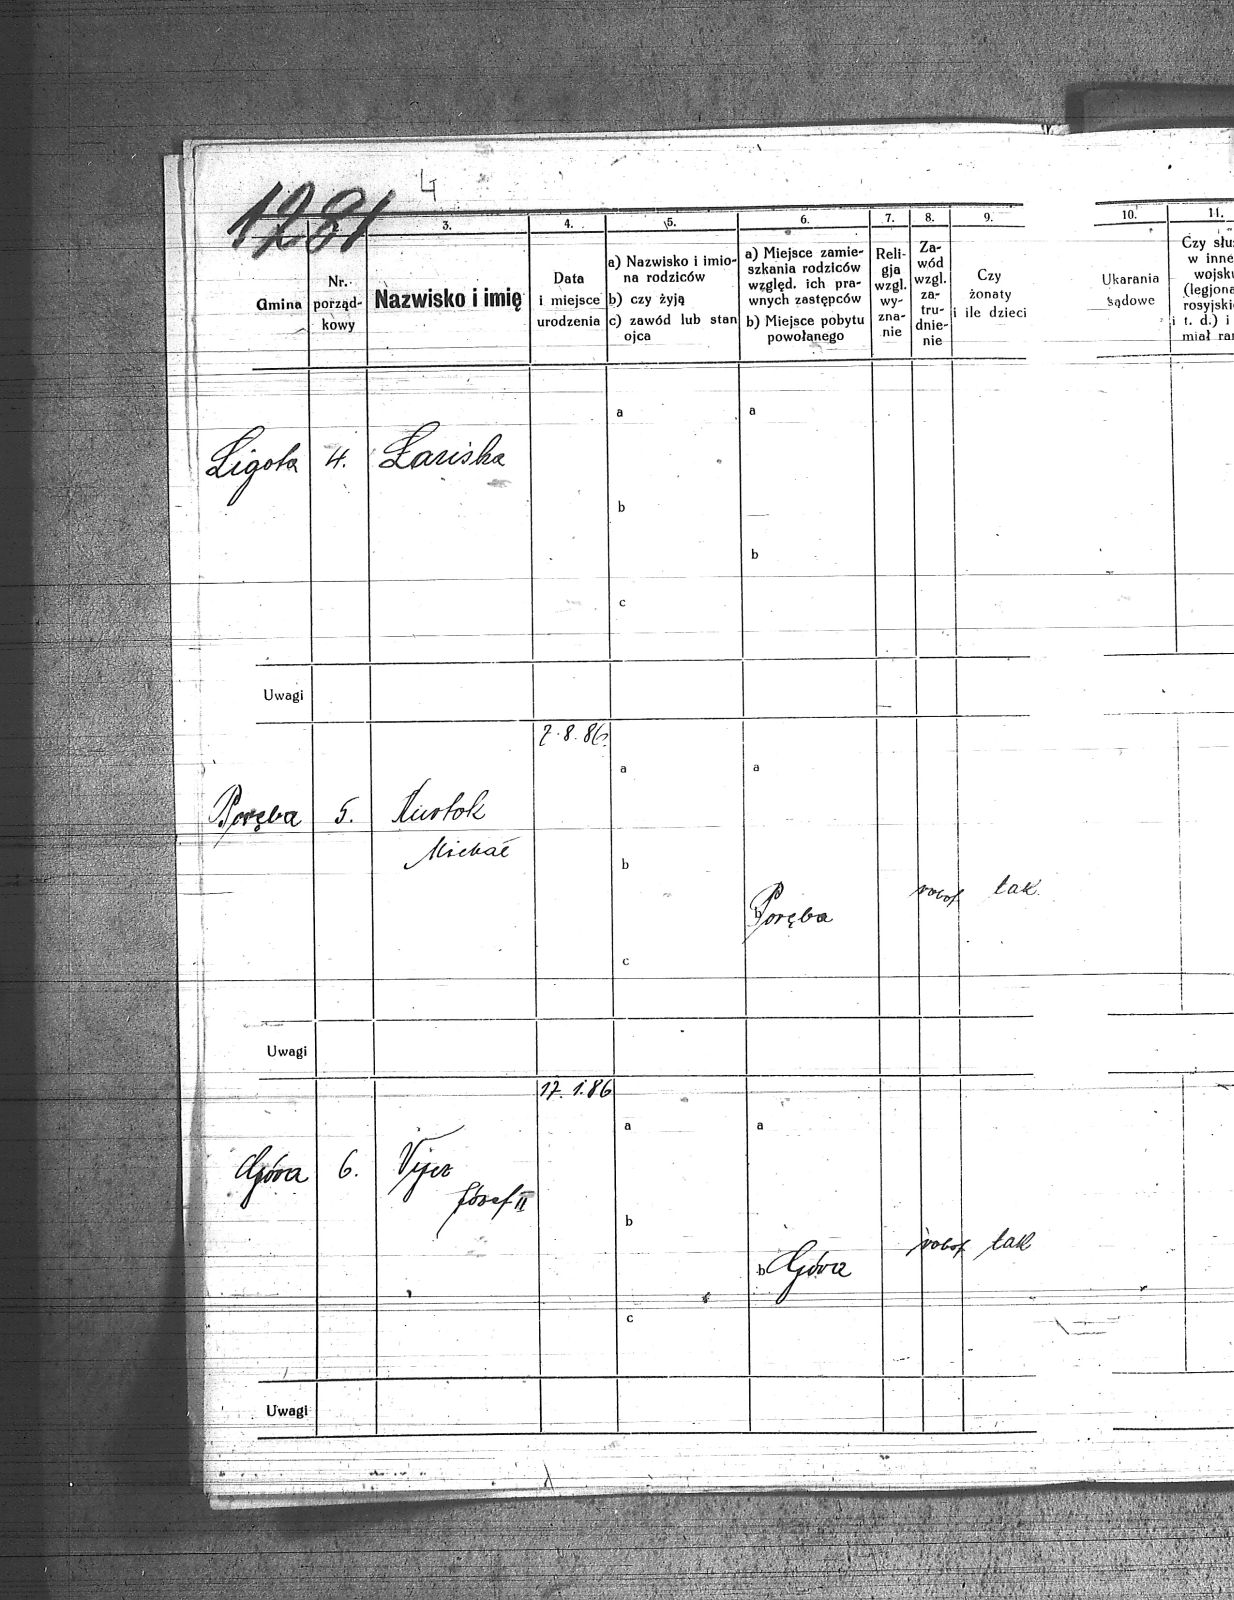 4
1281
3. 4. 5. 6. 7. 8. 9. 10. 11.
Gmina
Nr.
porząd-
kowy
Nazwisko i imię
Data
i miejsce
urodzenia
a) Nazwisko i imio-
na rodziców
b) czy żyją
c) zawód lub stan
ojca
a) Miejsce zamie-
szkania rodziców
względ. ich pra-
wnych zastępców
b) Miejsce pobytu
powołanego
Reli-
gja
wzgl.
wy-
zna-
nie
Za-
wód
wzgl.
za-
tru-
dnie-
nie
Czy
żonaty
i ile dzieci
Ukarania
sądowe
Czy słu
w inne
wojsku
(legjona
rosyjski
i t. d.) i
miał ra
Ligota 4. Łariska
a a
b
b
c
Uwagi
7. 8. 86.
a a
Poręba 5.
Michał
b
b Poręba robot tak
c
Uwagi
17. 1. 86
a a
Góra 6.
Józef II
b
b Góra robot tak
c
Uwagi